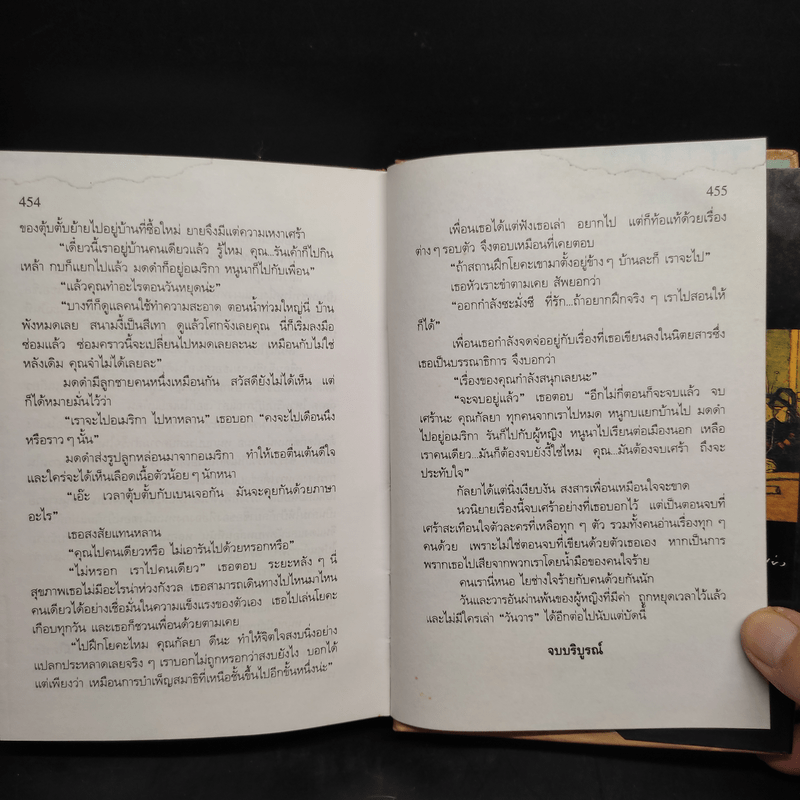 454
ของตุ้บตั้บย้ายไปอยู่บ้านที่ซื้อใหม่ ยายจึงมีแต่ความเหงาเศร้า
“เดี๋ยวนี้เราอยู่บ้านคนเดียวแล้ว รู้ไหม คุณ...รันเค้าก็ไปกิน
เหล้า กบก็แยกไปแล้ว มดดำก็อยู่อเมริกา หนูนาก็ไปกับเพื่อน”
“แล้วคุณทำอะไรตอนวันหยุดน่ะ”
“บางทีก็ดูแลคนใช้ทำความสะอาด ตอนน้ำท่วมใหญ่นี่ บ้าน
พังหมดเลย สนามงี้เป็นสีเทา ดูแล้วโศกจังเลยคุณ นี่ก็เริ่มลงมือ
ซ่อมแล้ว ซ่อมคราวนี้จะเปลี่ยนไปหมดเลยละนะ เหมือนกับไม่ใช่
หลังเดิม คุณจำไม่ได้เลยละ”
มดดำมีลูกชายคนหนึ่งเหมือนกัน สวัสดียังไม่ได้เห็น แต่
ก็ได้หมายมั่นไว้ว่า
“เราจะไปอเมริกา ไปหาหลาน” เธอบอก “คงจะไปเดือนนึง
หรือราว ๆ นั้น”
มดดำส่งรูปลูกหล่อนมาจากอเมริกา ทำให้เธอตื่นเต้นดีใจ
และใคร่จะได้เห็นเลือดเนื้อตัวน้อย ๆ นักหนา
“เอ๊ะ เวลาตุ้บตั้บกับเบนเจอกัน มันจะคุยกันด้วยภาษา
อะไร”
เธอสงสัยแทนหลาน
“คุณไปคนเดียวหรือ ไม่เอารันไปด้วยหรอกหรือ”
“ไม่หรอก เราไปคนเดียว” เธอตอบ ระยะหลัง ๆ นี่
สุขภาพเธอไม่มีอะไรน่าห่วงกังวล เธอสามารถเดินทางไปไหนมาไหน
คนเดียวได้อย่างเชื่อมั่นในความแข็งแรงของตัวเอง เธอไปเล่นโยคะ
เกือบทุกวัน และเธอก็ชวนเพื่อนด้วยตามเคย
“ไปฝึกโยคะไหม คุณ กัลยา ดีนะ ทำให้จิตใจสงบนิ่งอย่าง
แปลกประหลาดเลยจริง ๆ เราบอกไม่ถูกหรอกว่าสงบยังไง บอกได้
แต่เพียงว่า เหมือนการบำเพ็ญสมาธิที่เหนือชั้นขึ้นไปอีกขั้นหนึ่งน่ะ”
455
เพื่อนเธอได้แต่ฟังเธอเล่า อยากไป แต่ก็ท้อแท้ด้วยเรื่อง
ต่าง ๆ รอบตัว จึงตอบเหมือนที่เคยตอบ
“ถ้าสถานฝึกโยคะเขามาตั้งอยู่ข้าง ๆ บ้านละก็ เราจะไป”
เธอหัวเราะขำตามเคย สัพยอกว่า
“ออกกำลังซะมั่งซี ที่รัก...ถ้าอยากฝึกจริง ๆ เราไปสอนให้
ก็ได้”
เพื่อนเธอกำลังจดจ่ออยู่กับเรื่องที่เธอเขียนลงในนิตยสารซึ่ง
เธอเป็นบรรณาธิการ จึงบอกว่า
“เรื่องของคุณกำลังสนุกเลยนะ”
“จะจบอยู่แล้ว” เธอตอบ “อีกไม่กี่ตอนก็จะจบแล้ว จบ
เศร้านะ คุณ กัลยา ทุกคนจากเราไปหมด หนูกบแยกบ้านไป มดดำ
ไปอยู่อเมริกา รันก็ไปกับผู้หญิง หนูนาไปเรียนต่อเมืองนอก เหลือ
เราคนเดียว...มันก็ต้องจบยังงี้ใช่ไหม คุณ...มันต้องจบเศร้า ถึงจะ
ประทับใจ”
กัลยาได้แต่นิ่งเงียบงัน สงสารเพื่อนเหมือนใจจะขาด
นวนิยายเรื่องนี้จบเศร้าอย่างที่เธอบอกไว้ แต่เป็นตอนจบที่
เศร้าสะเทือนใจตัวละครที่เหลือทุก ๆ ตัว รวมทั้งคนอ่านเรื่องทุก ๆ
คนด้วย เพราะไม่ใช่ตอนจบที่เขียนด้วยตัวเธอเอง หากเป็นการ
พรากเธอไปเสียจากพวกเราโดยน้ำมือของคนใจร้าย
คนเรานี่หนอ ไยช่างใจร้ายกับคนด้วยกันนัก
วันและวารอันผ่านพ้นของผู้หญิงที่มีค่า ถูกหยุดเวลาไว้แล้ว
และไม่มีใครเล่า “วันวาร” ได้อีกต่อไปนับแต่บัดนี้
จบบริบูรณ์